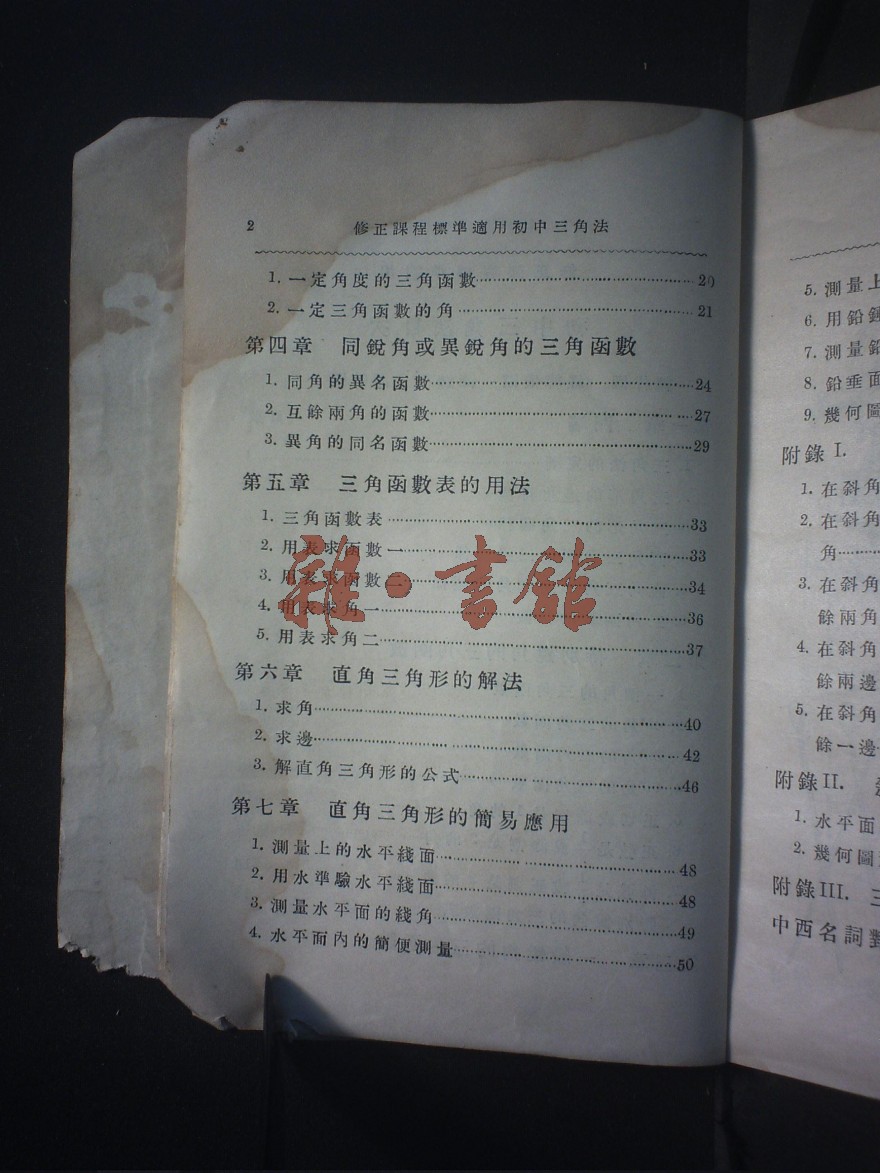 2 修正課程標準適用初中三角法
1. 一定角度的三角函數 20
2. 一定三角函數的角 21
第四章 同銳角或異銳角的三角函數
1. 同角的異名函數 24
2. 互餘兩角的函數 27
3. 異角的同名函數 29
第五章 三角函數表的用法
1. 三角函數表 33
2. 用表求函數一 33
3. 用表求函數二 34
4. 用表求角一 36
5. 用表求角二 37
雜·書館
第六章 直角三角形的解法
1. 求角 40
2. 求邊 42
3. 解直角三角形的公式 46
第七章 直角三角形的簡易應用
1. 測量上的水平綫面 48
2. 用水準驗水平綫面 48
3. 測量水平面的綫角 49
4. 水平面內的簡便測量 50
5. 測量上
6. 用鉛錘
7. 測量鉛
8. 鉛垂面
9. 幾何圖
附錄 I.
1. 在斜角
2. 在斜角
角
3. 在斜角
餘兩角
4. 在斜角
餘兩邊
5. 在斜角
餘一邊
附錄 II.
1. 水平面
2. 幾何圖
附錄 III. 三
中西名詞對